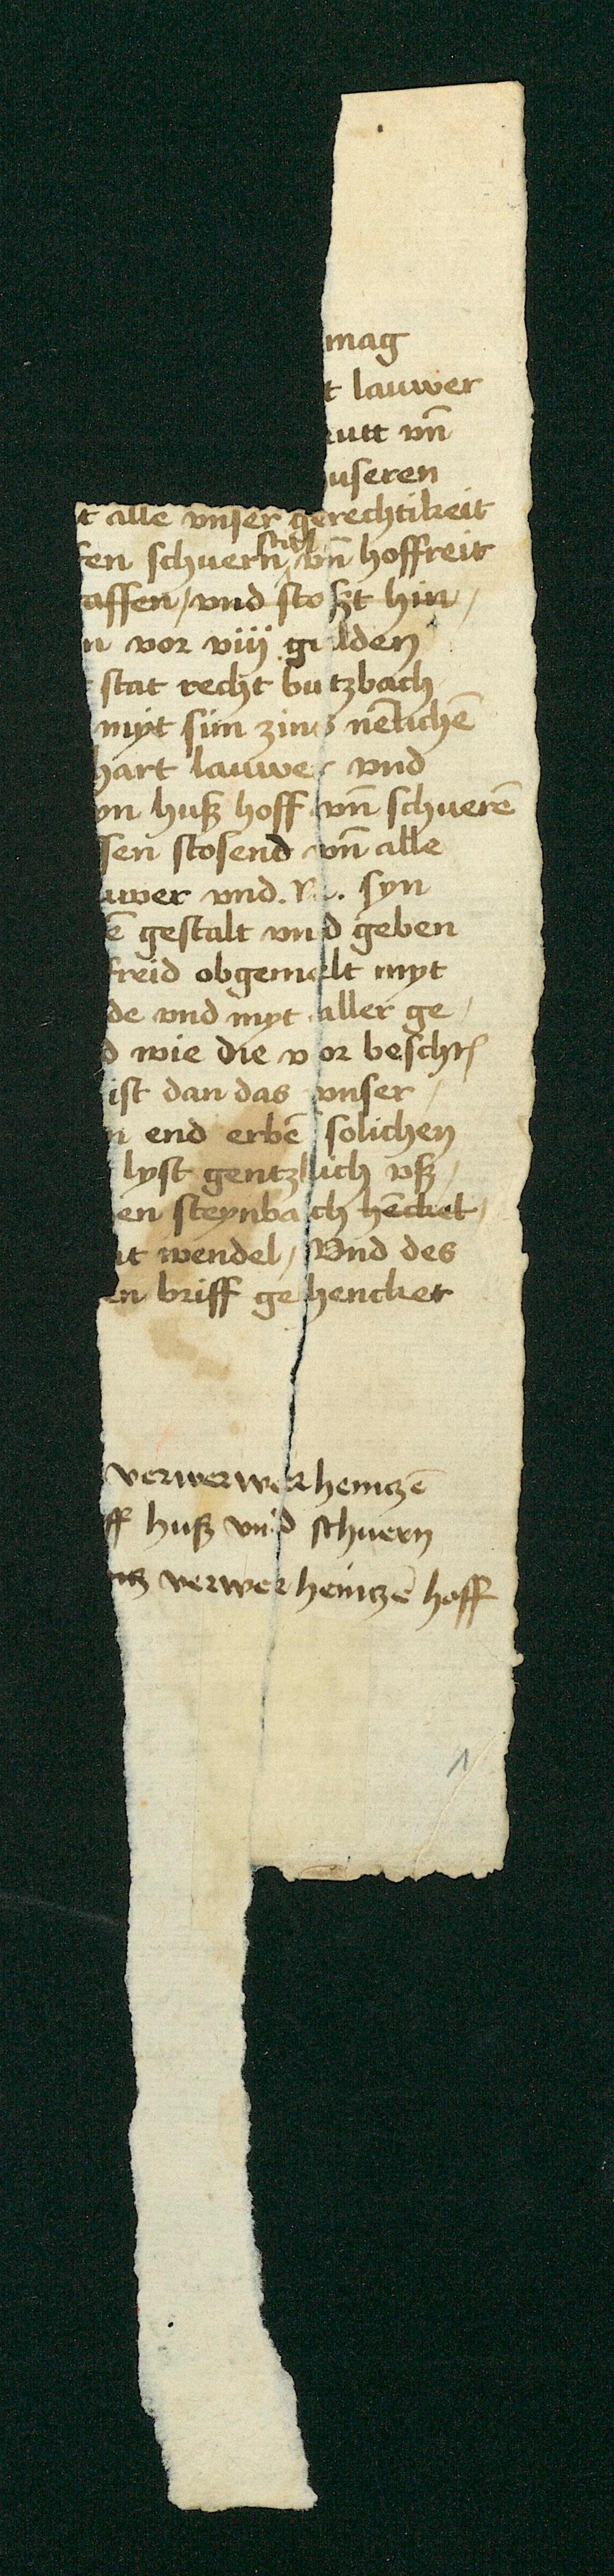 mag
t lauwer
utt vn̄
useren
t alle vnser gerechtikeit
en schuern stal vn̄ hoffreit
affen / vnd stoßt hin /
n vor viij gulden
stat recht butzbach
myt sim zins nēlichē
hart lauwer vnd
yn huß hoff vn̄ schuerē
sen stosend vn̄ alle
uwer vnd . syn
ē gestalt vnd geben
freid obgemelt myt
de vnd myt aller ge /
d wie die vor beschr
ist dan das vnser /
n end erbē solichen
lyst gentzlich vß /
en steynbach hēckel /
nt wendel / Vnd des
en briff gehencket
verwerwer heintzē
ff huß vnd schuern
ntz verwer heintzē hoff
1